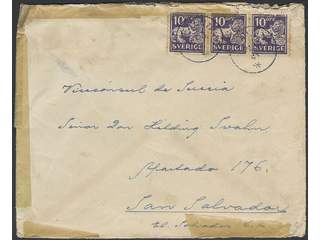 10 10 10
SVERIGE SVERIGE SVERIGE
Viceconsul de Suecia
Señor Don Helding Svahn
Apartado 176.
San Salvador
El Salvador C.A.